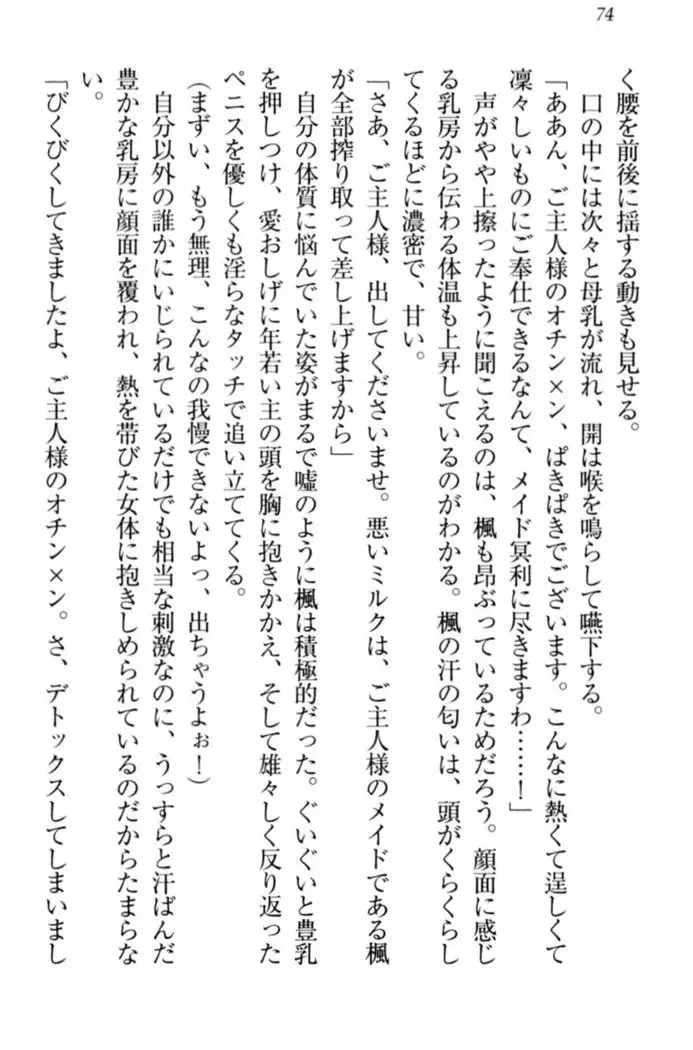 74
く腰を前後に揺する動きも見せる。
口の中には次々と母乳が流れ、開は喉を鳴らして嚥下する。
「ああん、ご主人様のオチン×ン、ぱきぱきでございます。こんなに熱くて逞しくて
凜々しいものにご奉仕できるなんて、メイド冥利に尽きますわ……！」
声がやや上擦ったように聞こえるのは、楓も昂ぶっているためだろう。顔面に感じ
る乳房から伝わる体温も上昇しているのがわかる。楓の汗の匂いは、頭がくらくらし
てくるほどに濃密で、甘い。
「さあ、ご主人様、出してくださいませ。悪いミルクは、ご主人様のメイドである楓
が全部搾り取って差し上げますから」
自分の体質に悩んでいた姿がまるで嘘のように楓は積極的だった。ぐいぐいと豊乳
を押しつけ、愛おしげに年若い主の頭を胸に抱きかかえ、そして雄々しく反り返った
ペニスを優しくも淫らなタッチで追い立ててくる。
(まずい、もう無理、こんなの我慢できないよっ、出ちゃうよぉ！)
自分以外の誰かにいじられているだけでも相当な刺激なのに、うっすらと汗ばんだ
豊かな乳房に顔面を覆われ、熱を帯びた女体に抱きしめられているのだからたまらな
い。
「びくびくしてきましたよ、ご主人様のオチン×ン。さ、デトックスしてしまいまし